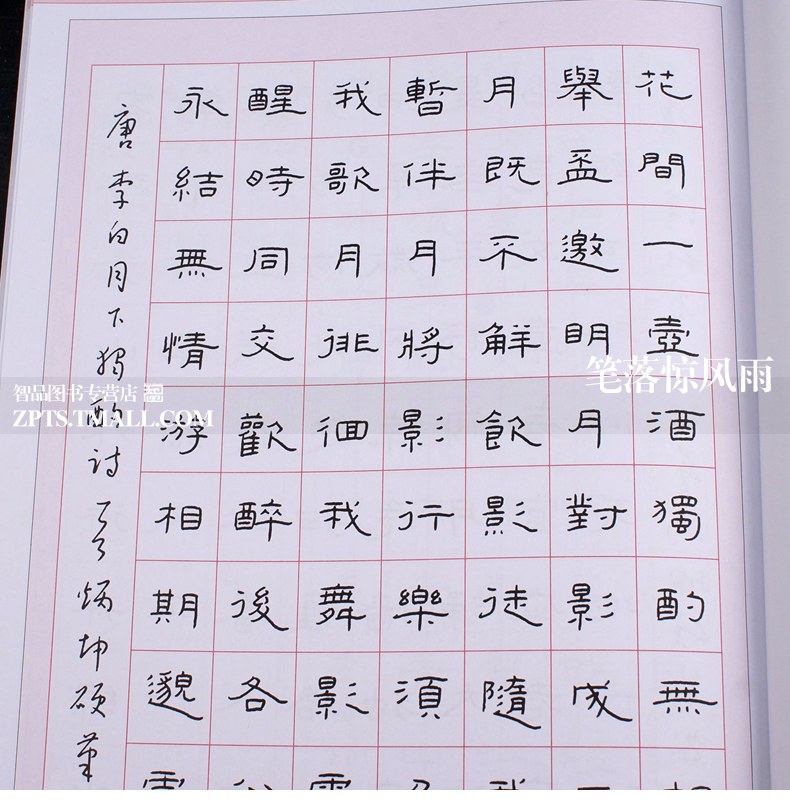 花間一壺酒獨酌無
舉盃邀明月對影成
月既不解飲影徒隨
暫伴月將影行樂須
我歌月徘徊我舞影
醒時同交歡醉後各
永結無情游相期邈
唐李白月下獨酌诗炳坤硕筆
笔落惊风雨
智品图书专营店
ZPTS.TMALL.COM